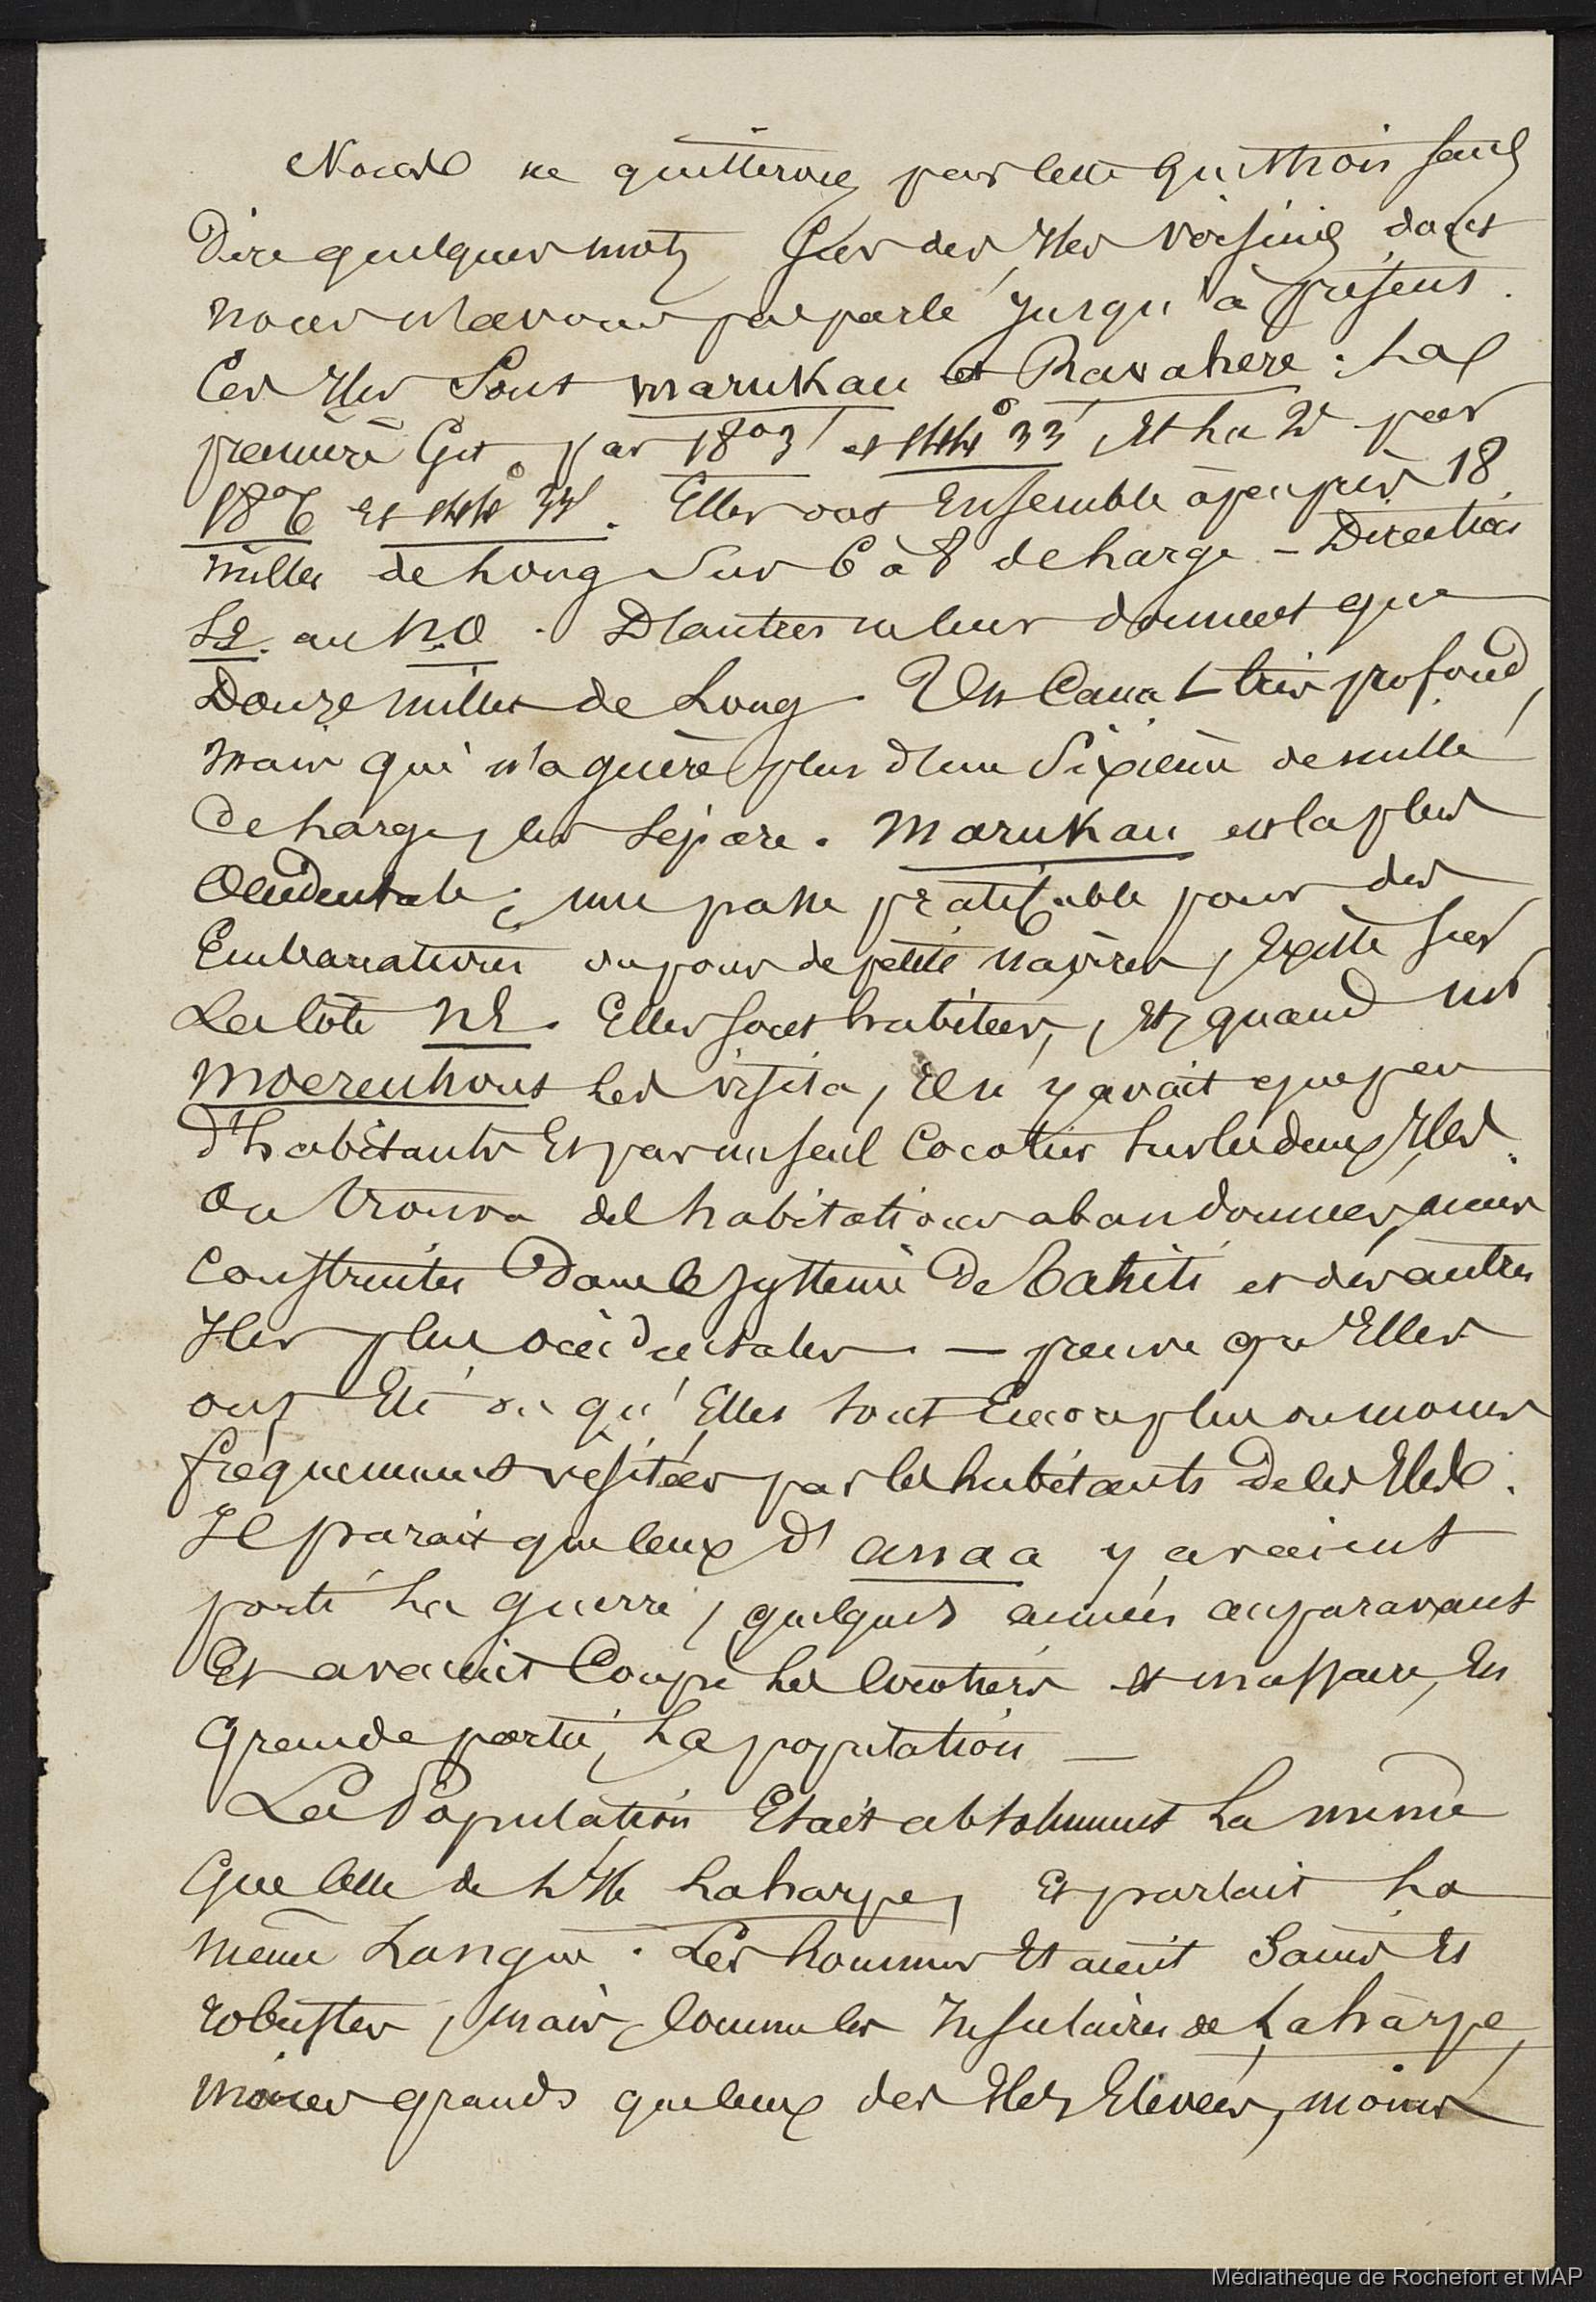 Nous ne quitterons pas cette question sans
Dire quelques mots sur des Iles voisines, dont
nous n'avons pas parlé jusqu'à présent.
Ces Iles sont marukau et Ravahere : La
première Git par 18°3' et 144° 33' Et La 2e par
18°6 Et 144° 34'. Elles ont Ensemble à peu près 18
milles de Long sur 6 à 8 de Large - Direction
S.E. au N.O. D'autres ne leur donnent que
Douze milles de Long. Un Canal très profond,
mais qui n'a guère plus d'un Sixième de mille
de Large, les Sépare. Marukau est la plus
Occidentale ; une passe praticable pour des
Embarcations ou pour de petits navires, Existe sur
La Côte NE. Elles sont habitées, Et quand Mr
Moerenhout Les visita, Il n'y avait que peu
d'habitants Et pas un seul Cocotier sur les deux Iles.
On trouva des habitations abandonnées, mais
Construites Dans le système De Tahiti et des autres
Iles plus occidentales. — preuve qu'Elles
ont Eté ou qu'Elles sont Encore plus ou moins
fréquemment visitées par les habitants De ces Iles.
Il parait que ceux d'anaa y avaient
porté La guerre, quelques années auparavant
Et avaient Coupé Les Cocotiers et massacré, En
Grande partie, La population —
La Population Etait absolument La même
Que celle de L'Ile Laharpe, Et parlait La
même Langue. Les hommes Etaient Sains Et
robustes, mais, comme les Insulaires de Laharpe,
moins grands que ceux des Iles Elevées, moins